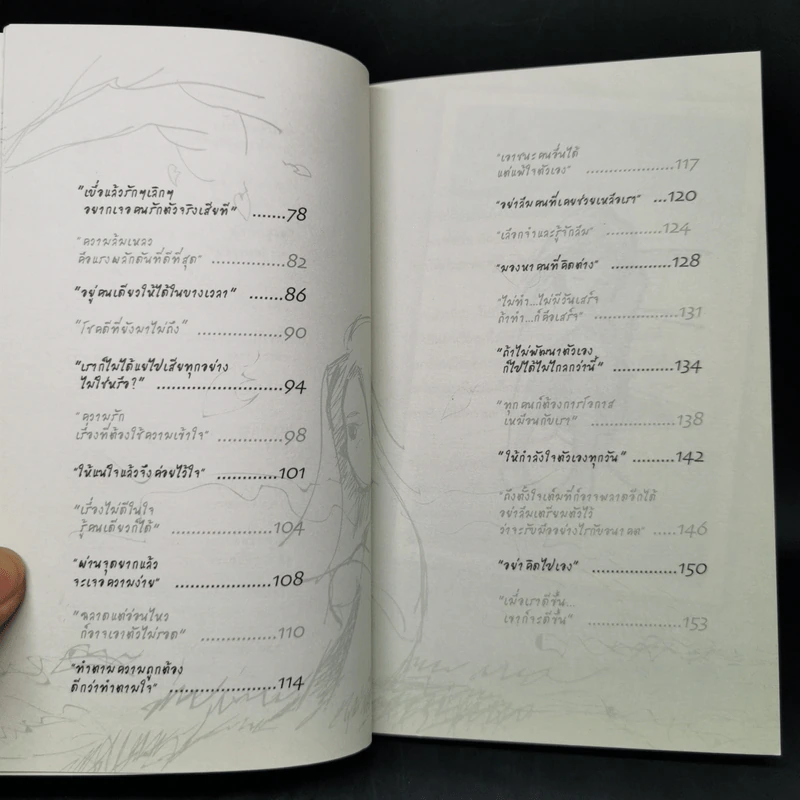 "เบื่อแล้วรักๆเลิกๆ
อยากเจอคนรักตัวจริงเสียที" .......78
"ความล้มเหลว
คือแรงผลักดันที่ดีที่สุด" ....................82
"อยู่คนเดียวให้ได้ในบางเวลา" ........86
"โชคดีที่ยังมาไม่ถึง" .....................90
"เราก็ไม่ได้แย่ไปเสียทุกอย่าง
ไม่ใช่หรือ?" ................................94
"ความรัก
เรื่องที่ต้องใช้ความเข้าใจ" .................98
"ให้แน่ใจแล้วจึงค่อยไว้ใจ" ............101
"เรื่องไม่ดีในใจ
รู้คนเดียวก็ได้" ...........................104
"ผ่านจุดยากแล้ว
จะเจอความง่าย" ........................108
"ฉลาดแต่อ่อนไหว
ก็อาจเอาตัวไม่รอด" ......................110
"ทำตามความถูกต้อง
ดีกว่าทำตามใจ" .........................114
"เอาชนะคนอื่นได้
แต่แพ้ใจตัวเอง" ......................117
"อย่าลืมคนที่เคยช่วยเหลือเรา" ...120
"เลือกจำและรู้จักลืม" ................124
"มองหาคนที่คิดต่าง" .................128
"ไม่ทำ...ไม่มีวันเสร็จ
ถ้าทำ...ก็คือเสร็จ" .....................131
"ถ้าไม่พัฒนาตัวเอง
ก็ไปได้ไม่ไกลกว่านี้" ..................134
"ทุกคนก็ต้องการโอกาส
เหมือนกับเรา" .........................138
"ให้กำลังใจตัวเองทุกวัน" ..........142
"ถึงตั้งใจเต็มที่ก็อาจพลาดอีกได้
อย่าลืมเตรียมตัวไว้
ว่าจะรับมืออย่างไรกับอนาคต" ......146
"อย่าคิดไปเอง" ........................150
"เมื่อเราดีขึ้น...
เขาก็จะดีขึ้น" ...........................153